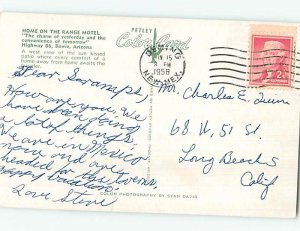 HOME ON THE RANGE MOTEL
"The charm of yesterday and the
convenience of tomorrow"
Highway 86, Bowie, Arizona
A west view of the sun kissed
patio where every comfort of a
home away from home awaits the
traveler.
PETLEY
Color Card
DEMING
JUN 15
PM
1958
NEW MEX.
2¢
Dear Gramps,
How are you. We
have been doing
a lot of things.
We are in Mexico
now and are
headed for the
happy
Love Steve
Mr. Charles E. Quinn
68 W. 51 St.
Long Beach
Calif
COLOR PHOTOGRAPHY BY STAN DAVIS